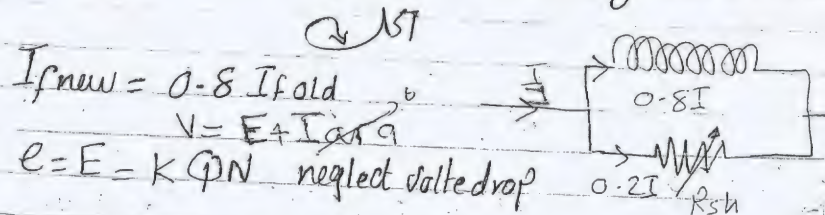 If new = 0.8 If old
I
0.8I
V = E + Iara
e = E = KΦN neglect voltedrop
0.2I Rsh